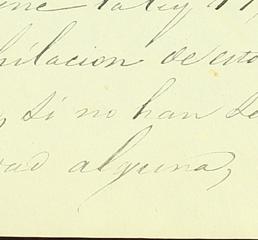 la ley
hilacion de esta
, si no han se
vad alguna,